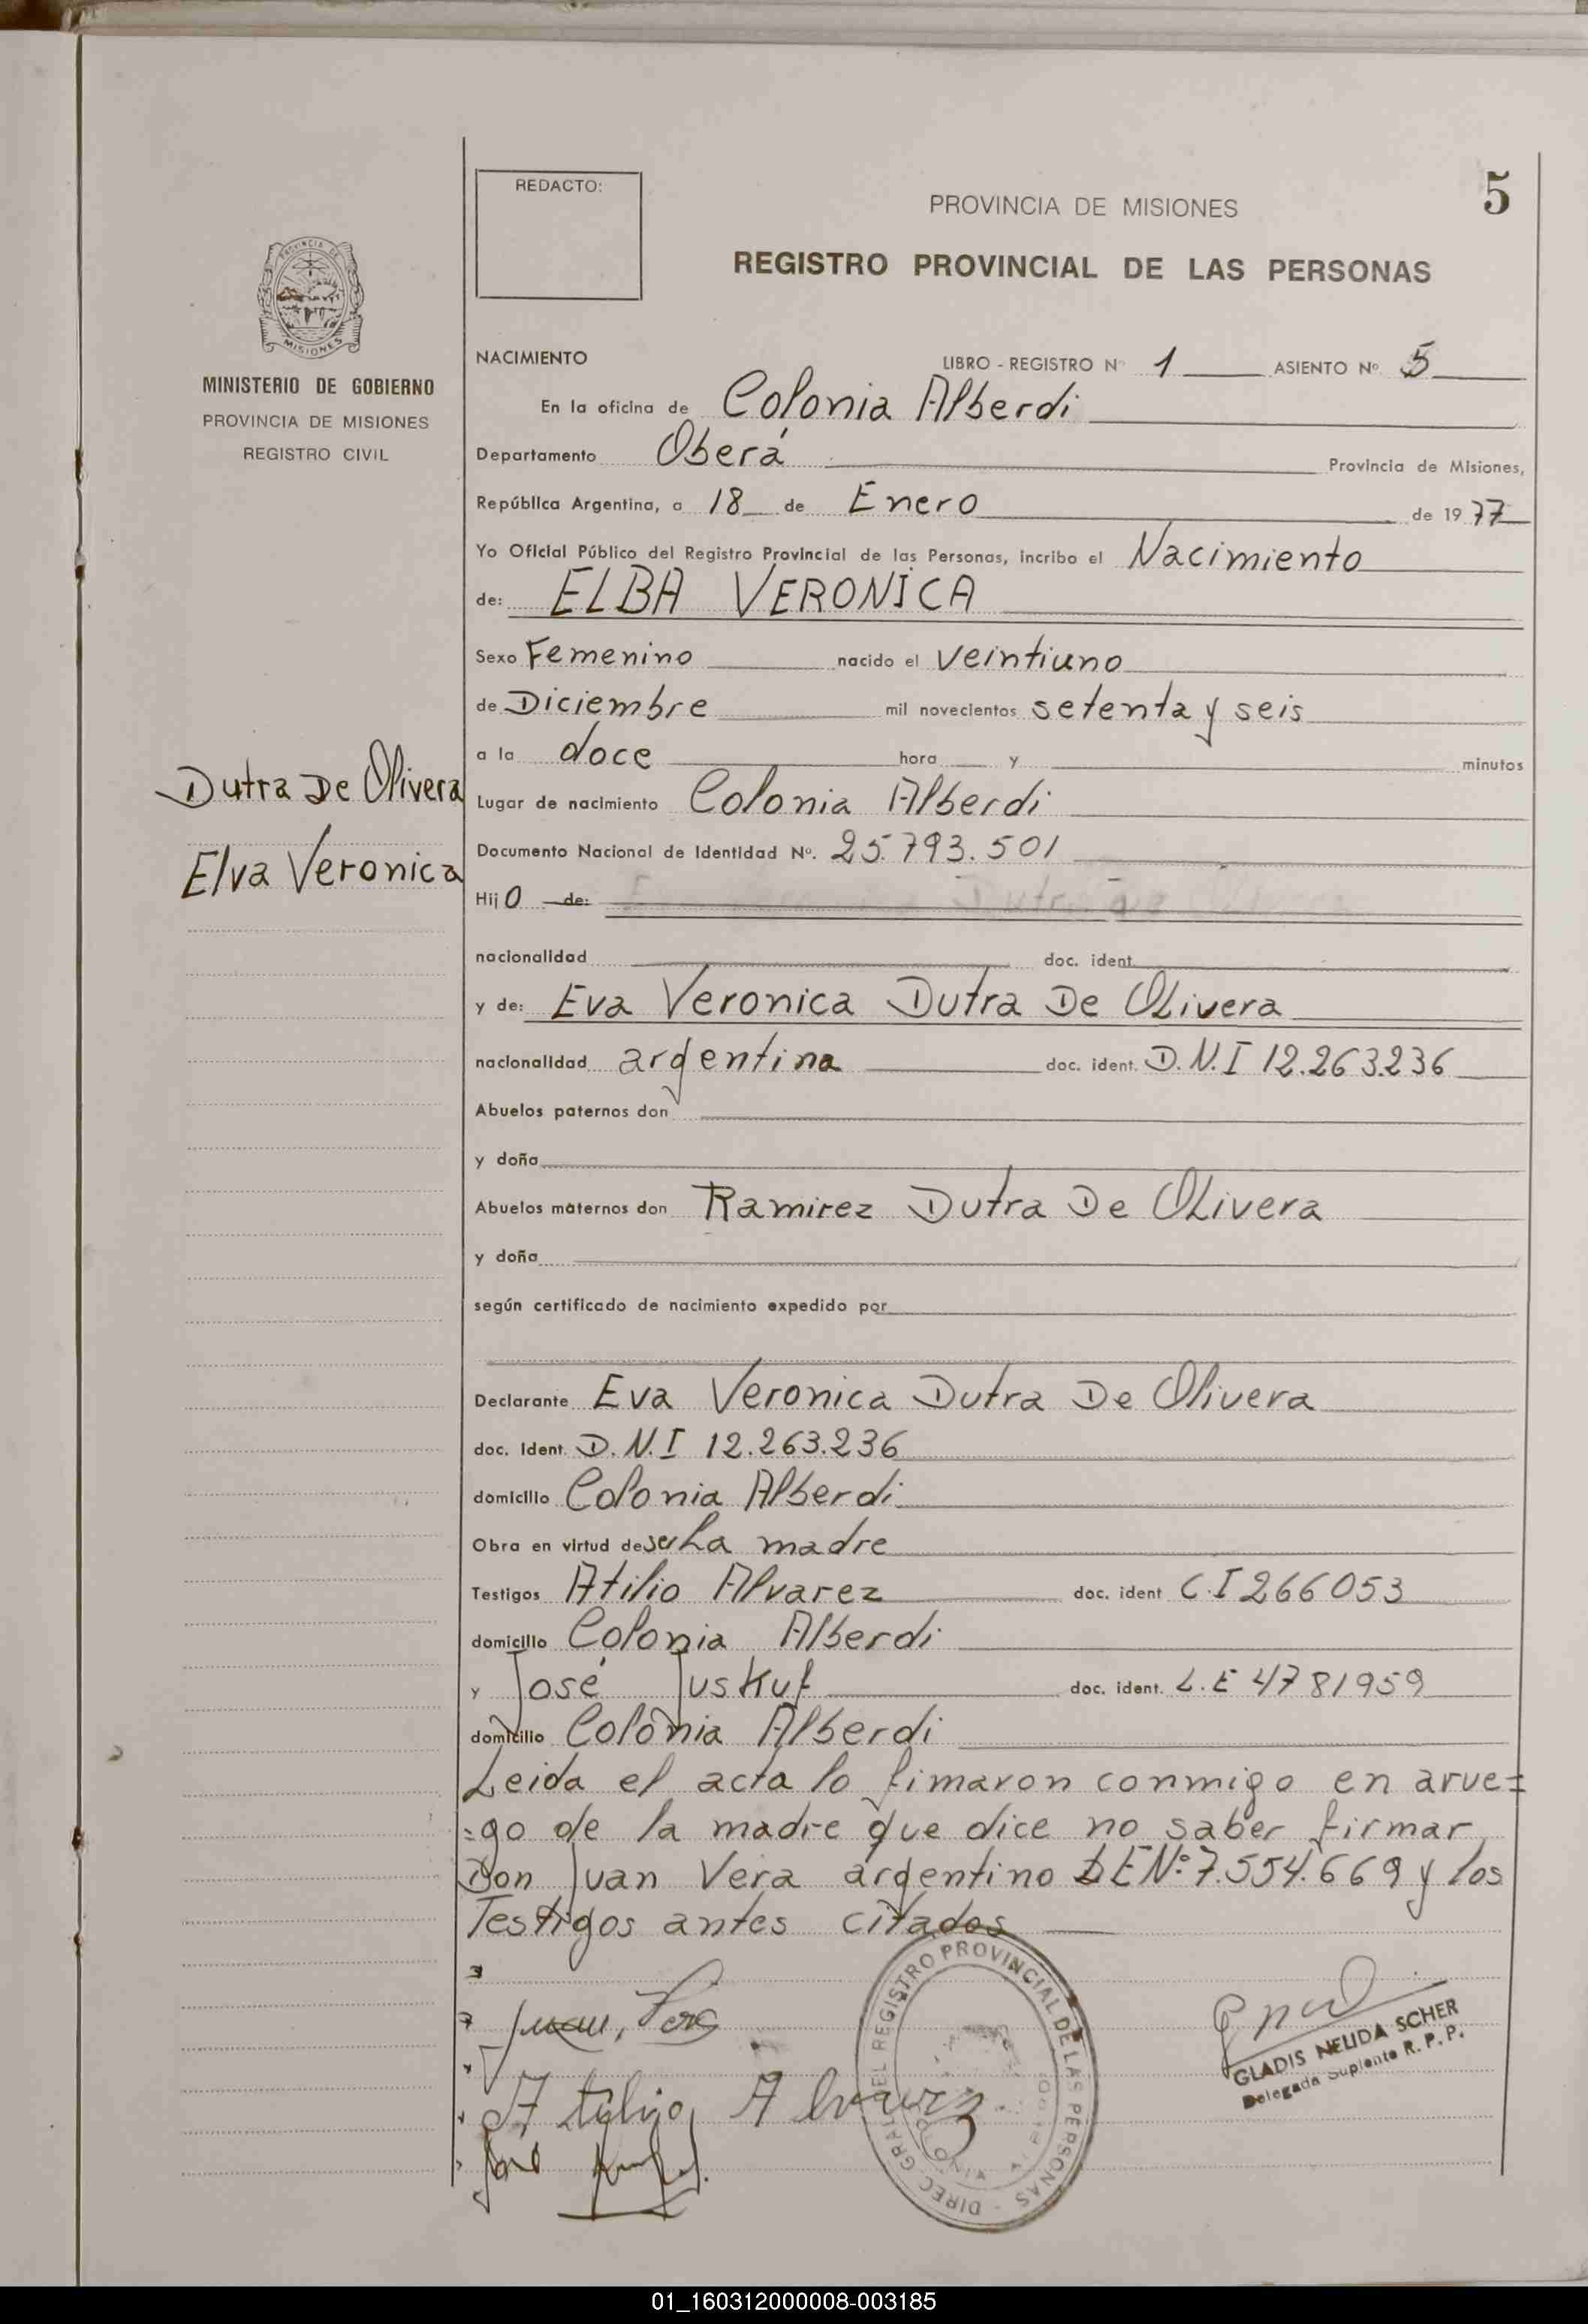 REDACTO:
PROVINCIA DE MISIONES
5
REGISTRO PROVINCIAL DE LAS PERSONAS
MINISTERIO DE GOBIERNO
PROVINCIA DE MISIONES
REGISTRO CIVIL
NACIMIENTO LIBRO - REGISTRO Nº 1 ASIENTO Nº 5
En la oficina de Colonia Alberdi
Departamento Oberá Provincia de Misiones,
República Argentina, a 18 de Enero de 1977
Yo Oficial Público del Registro Provincial de las Personas, incribo el Nacimiento
de: ELBA VERONICA
Sexo Femenino nacido el veintiuno
de Diciembre mil novecientos setenta y seis
a la doce hora y minutos
Dutra De Olivera
Elva Veronica
Lugar de nacimiento Colonia Alberdi
Documento Nacional de Identidad Nº. 25.793.501
Hijo de:
nacionalidad doc. ident.
y de: Eva Veronica Dutra De Olivera
nacionalidad argentina doc. ident. D.N.I 12.263.236
Abuelos paternos don
y doña
Abuelos maternos don Ramirez Dutra De Olivera
y doña
según certificado de nacimiento expedido por
Declarante Eva Veronica Dutra De Olivera
doc. Ident. D.N.I 12.263.236
domicilio Colonia Alberdi
Obra en virtud de ser La madre
Testigos Atilio Alvarez doc. ident C.I 266053
domicilio Colonia Alberdi
y José Juskuf doc. ident. L.E 4781959
domicilio Colonia Alberdi
Leida el acta lo fimaron conmigo en arue=
=go de la madre que dice no saber firmar
Don Juan Vera argentino LE Nº 7.554.669 y los
Testigos antes citados
Juan Vera
Atilijo Alvarez
José
DIREC. GRAL. DEL REGISTRO PROVINCIAL DE LAS PERSONAS
GLADIS NELIDA SCHER
Delegada Suplente R. P. P.
01_160312000008-003185